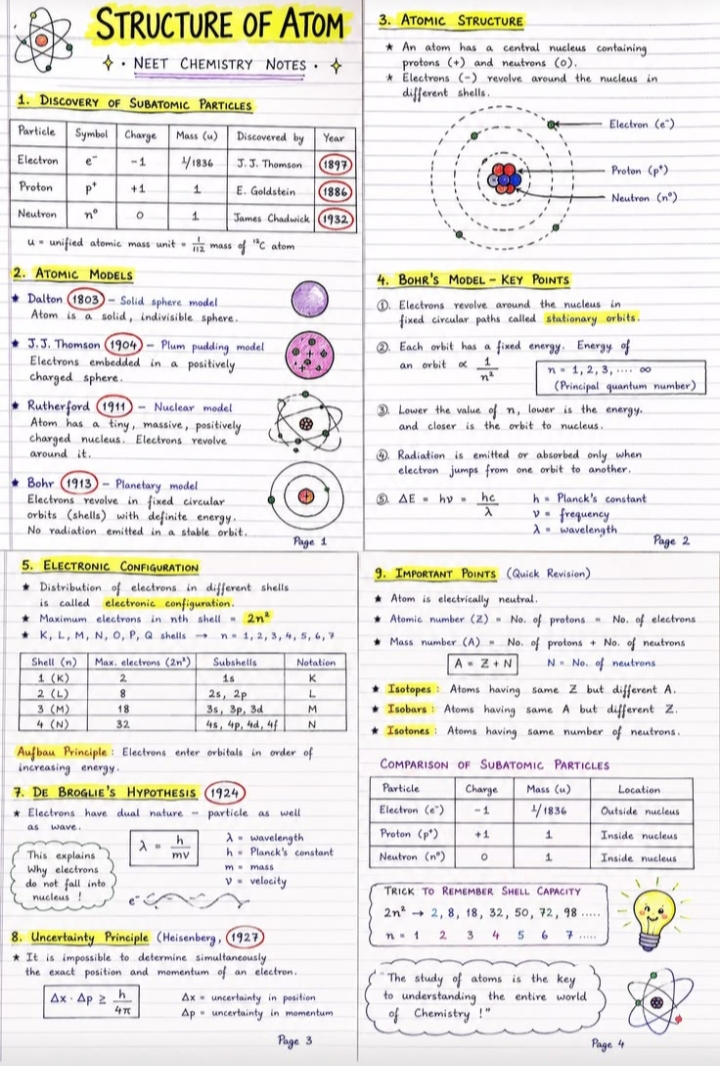 STRUCTURE OF ATOM
NEET CHEMISTRY NOTES
1. DISCOVERY OF SUBATOMIC PARTICLES
Particle Symbol Charge Mass (u) Discovered by Year
Electron e⁻ -1 1/1836 J.J. Thomson 1897
Proton p⁺ +1 1 E. Goldstein 1886
Neutron n⁰ 0 1 James Chadwick 1932
u = unified atomic mass unit = 1/112 mass of ¹²C atom
2. ATOMIC MODELS
★ Dalton (1803) – Solid sphere model
Atom is a solid, indivisible sphere.
★ J.J. Thomson (1904) – Plum pudding model
Electrons embedded in a positively
charged sphere.
★ Rutherford (1911) – Nuclear model
Atom has a tiny, massive, positively
charged nucleus. Electrons revolve
around it.
★ Bohr (1913) – Planetary model
Electrons revolve in fixed circular
orbits (shells) with definite energy.
No radiation emitted in a stable orbit.
Page 1
3. ATOMIC STRUCTURE
★ An atom has a central nucleus containing
protons (+) and neutrons (0).
★ Electrons (-) revolve around the nucleus in
different shells.
Electron (e⁻)
Proton (p⁺)
Neutron (n⁰)
4. BOHR'S MODEL – KEY POINTS
①. Electrons revolve around the nucleus in
fixed circular paths called stationary orbits.
②. Each orbit has a fixed energy. Energy of
an orbit ∝ 1/n²
n = 1, 2, 3, .... ∞
(Principal quantum number)
③. Lower the value of n, lower is the energy.
and closer is the orbit to nucleus.
④. Radiation is emitted or absorbed only when
electron jumps from one orbit to another.
⑤. ΔE = hν = hc/λ
h = Planck's constant
ν = frequency
λ = wavelength
Page 2
5. ELECTRONIC CONFIGURATION
★ Distribution of electrons in different shells
is called electronic configuration.
★ Maximum electrons in nth shell = 2n²
★ K, L, M, N, O, P, Q shells → n = 1, 2, 3, 4, 5, 6, 7
Shell (n) Max. electrons (2n²) Subshells Notation
1 (K) 2 1s K
2 (L) 8 2s, 2p L
3 (M) 18 3s, 3p, 3d M
4 (N) 32 4s, 4p, 4d, 4f N
Aufbau Principle : Electrons enter orbitals in order of
increasing energy.
7. DE BROGLIE'S HYPOTHESIS (1924)
★ Electrons have dual nature – particle as well
as wave.
λ = h/mv
λ = wavelength
h = Planck's constant
m = mass
v = velocity
This explains
Why electrons
do not fall into
nucleus !
e⁻
8. Uncertainty Principle (Heisenberg, 1927)
★ It is impossible to determine simultaneously
the exact position and momentum of an electron.
Δx · Δp ≥ h/4π
Δx = uncertainty in position
Δp = uncertainty in momentum
Page 3
9. IMPORTANT POINTS (Quick Revision)
★ Atom is electrically neutral.
★ Atomic number (Z) = No. of protons = No. of electrons
★ Mass number (A) = No. of protons + No. of neutrons
A = Z + N N = No. of neutrons
★ Isotopes : Atoms having same Z but different A.
★ Isobars : Atoms having same A but different Z.
★ Isotones : Atoms having same number of neutrons.
COMPARISON OF SUBATOMIC PARTICLES
Particle Charge Mass (u) Location
Electron (e⁻) -1 1/1836 Outside nucleus
Proton (p⁺) +1 1 Inside nucleus
Neutron (n⁰) 0 1 Inside nucleus
TRICK TO REMEMBER SHELL CAPACITY
2n² → 2, 8, 18, 32, 50, 72, 98 .....
n = 1 2 3 4 5 6 7 .....
"The study of atoms is the key
to understanding the entire world
of Chemistry !"
Page 4